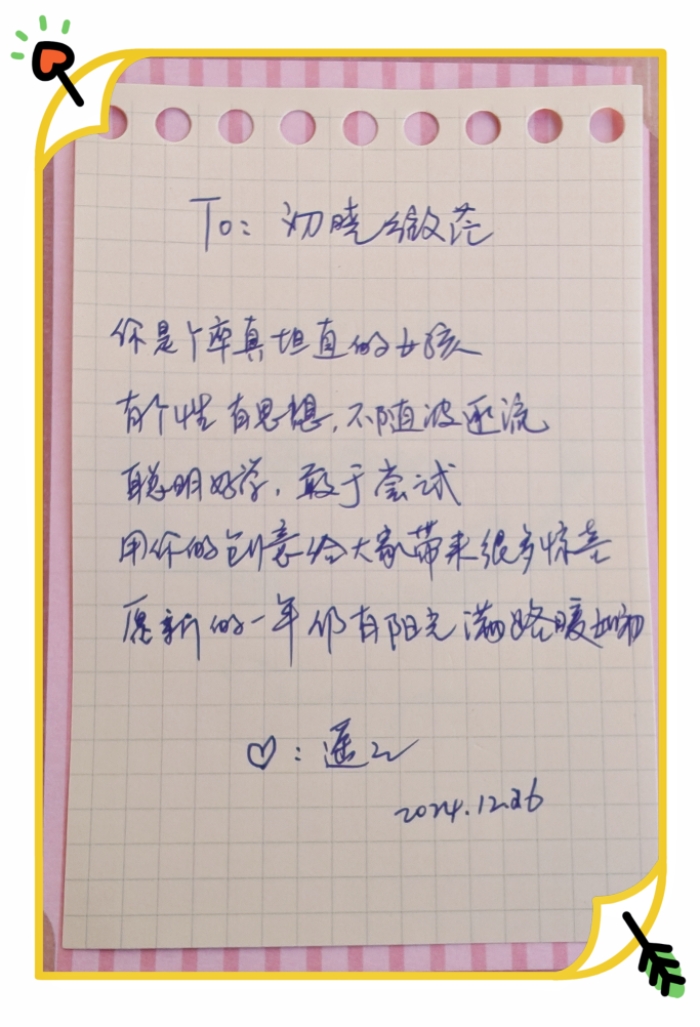 To: 初晓微茫
你是个率真坦直的女孩
有个性有思想,不随波逐流
聪明好学,敢于尝试
用你的创意给大家带来很多惊喜
愿新的一年仍有阳光满路暖如初
♡: 遥
2024.12.26